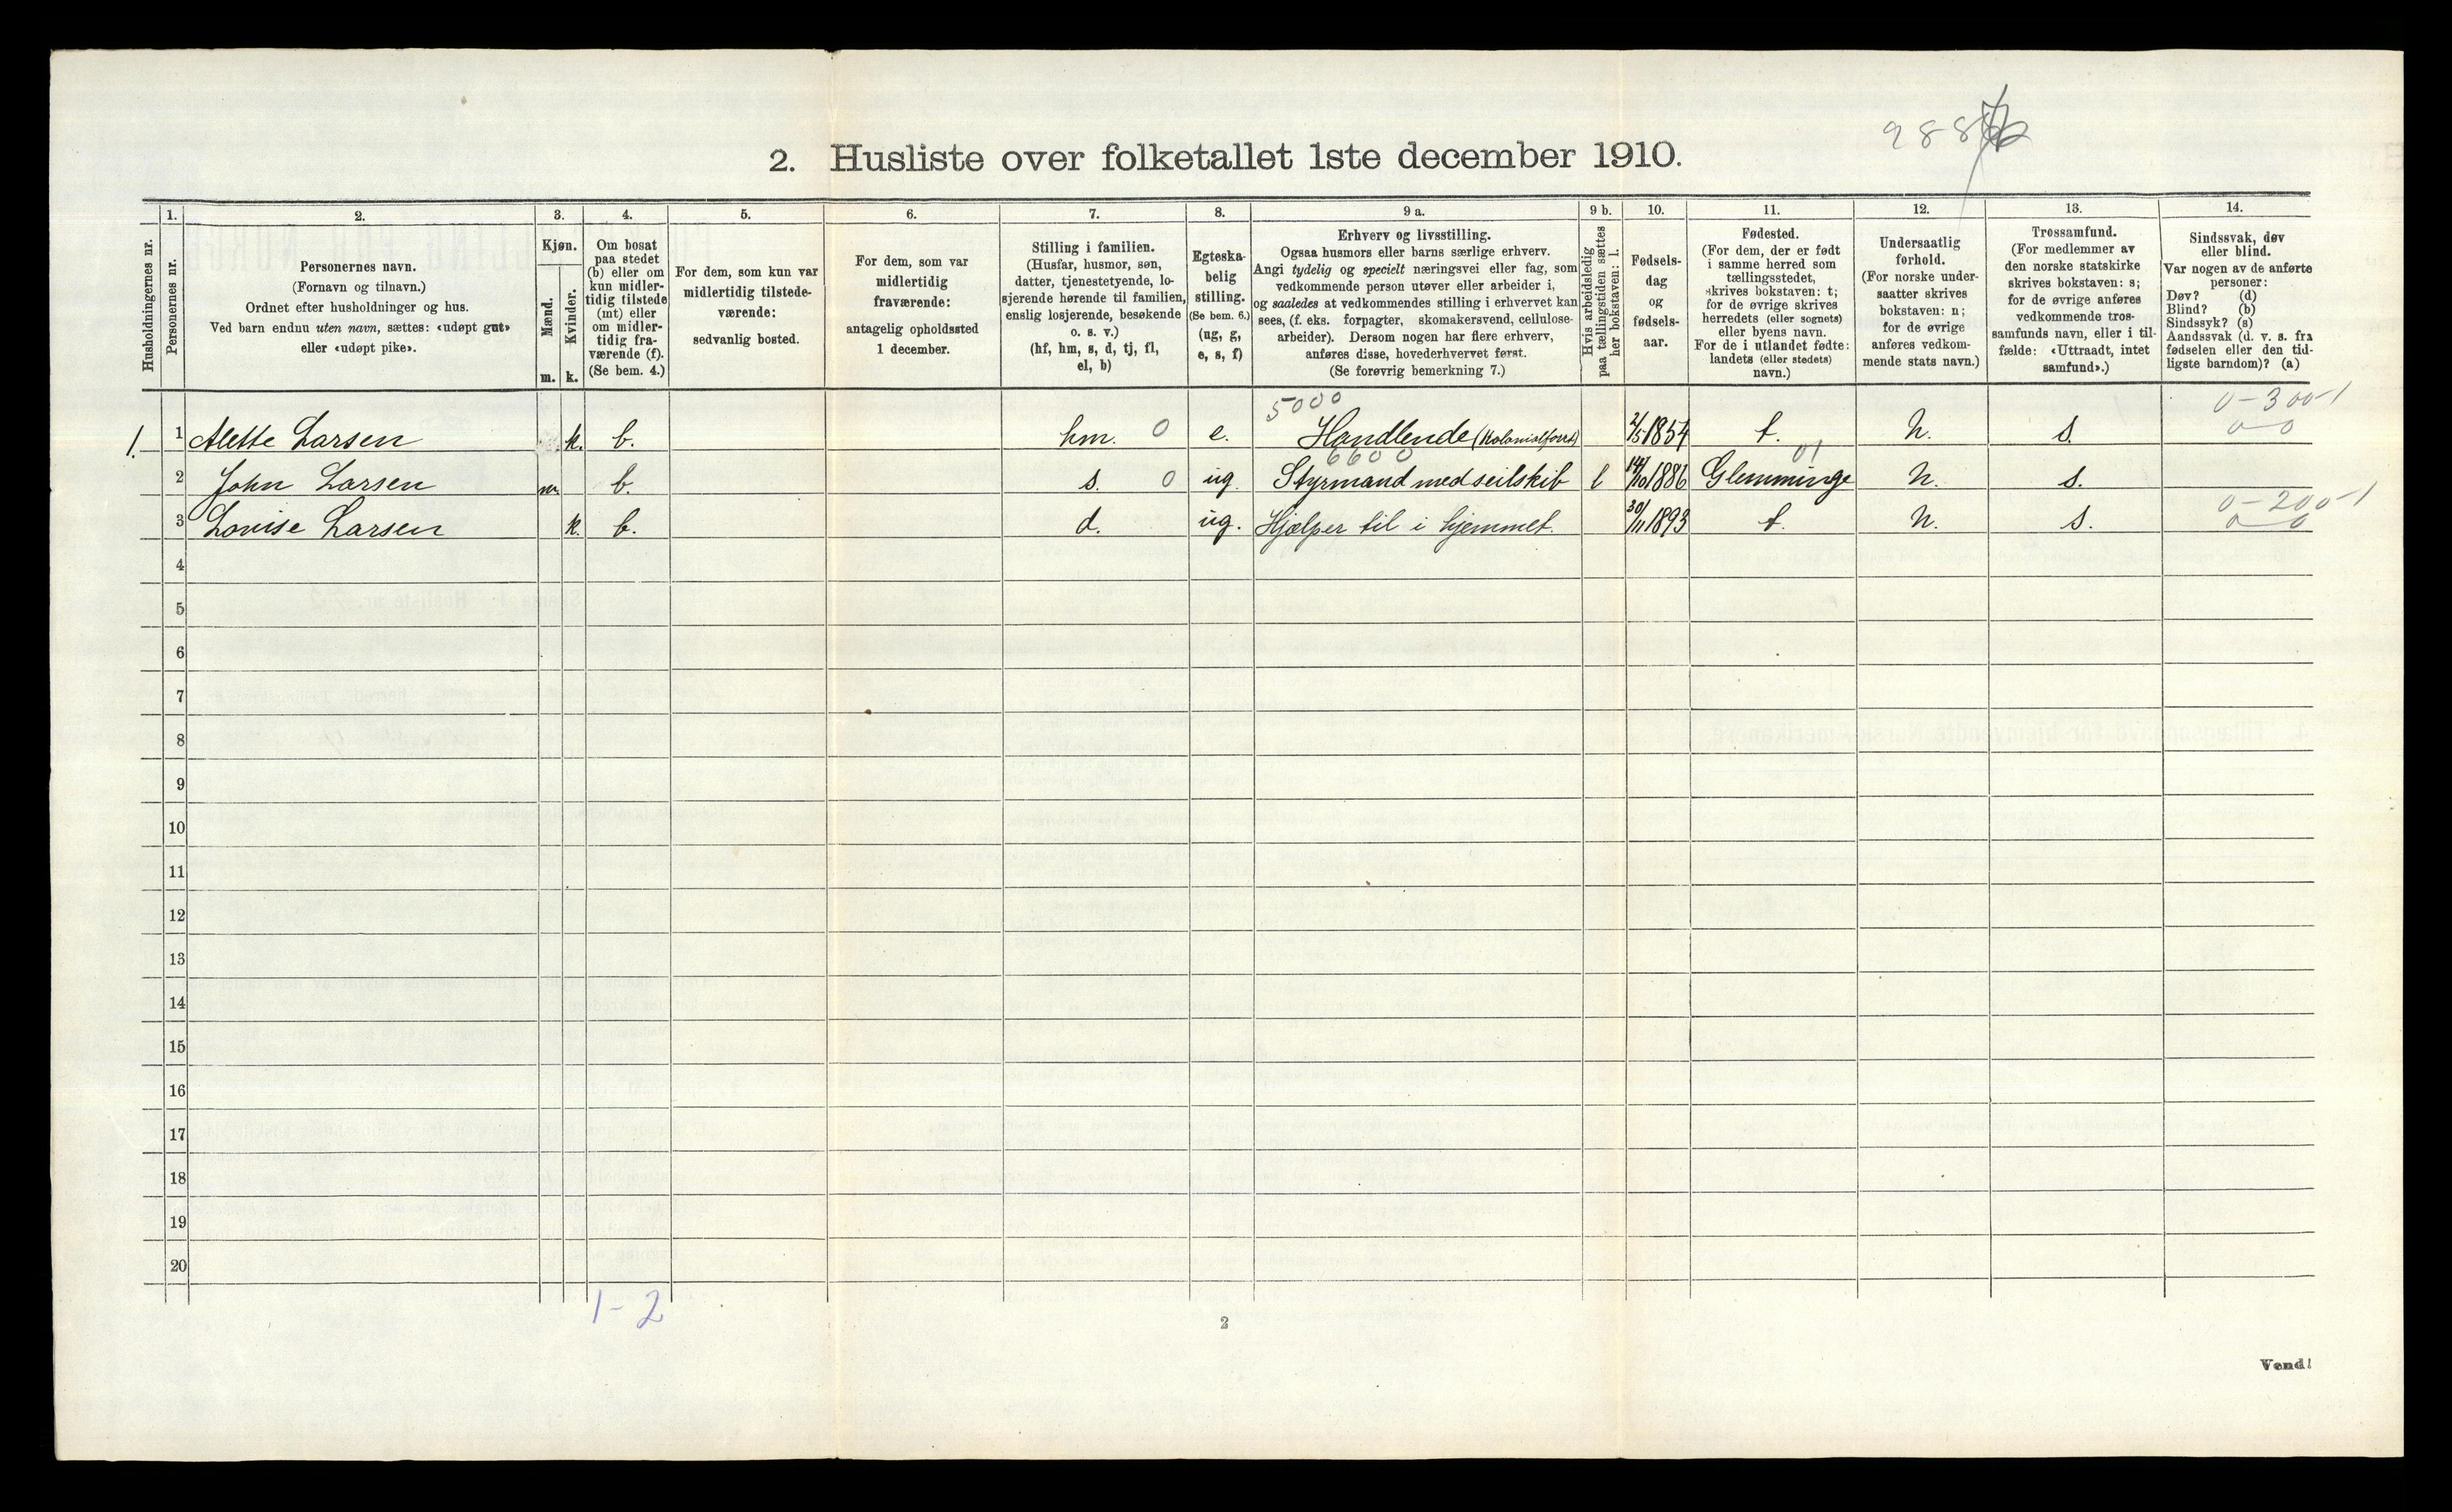 2. Husliste over folketallet 1ste december 1910.
1.
2.
3.
4.
5.
6.
7.
8.
9 a.
9 b.
10.
11.
12.
13.
14.
Husholdningernes nr.
Personernes nr.
Personernes navn.
(Fornavn og tilnavn.)
Ordnet efter husholdninger og hus.
Ved barn endnu uten navn, sættes: «udøpt gut»
eller «udøpt pike».
Kjøn.
Mænd.
Kvinder.
m. k.
Om bosat
paa stedet
(b) eller om
kun midler-
tidig tilstede
(mt) eller
om midler-
tidig fra-
værende (f).
(Se bem. 4.)
For dem, som kun var
midlertidig tilstede-
værende:
sedvanlig bosted.
For dem, som var
midlertidig
fraværende:
antagelig opholdssted
1 december.
Stilling i familien.
(Husfar, husmor, søn,
datter, tjenestetyende, lo-
sjerende hørende til familien,
enslig losjerende, besøkende
o. s. v.)
(hf, hm, s, d, tj, fl,
el, b)
Egteska-
belig
stilling.
(Se bem. 6.)
(ug, g,
e, s, f)
Erhverv og livsstilling.
Ogsaa husmors eller barns særlige erhverv.
Angi tydelig og specielt næringsvei eller fag, som
vedkommende person utøver eller arbeider i,
og saaledes at vedkommendes stilling i erhvervet kan
sees, (f. eks. forpagter, skomakersvend, cellulose-
arbeider). Dersom nogen har flere erhverv,
anføres disse, hovederhvervet først.
(Se forøvrig bemerkning 7.)
Hvis arbeidsledig
paa tællingstiden sættes
her bokstaven: l.
Fødsels-
dag
og
fødsels-
aar.
Fødested.
(For dem, der er født
i samme herred som
tællingsstedet,
skrives bokstaven: t;
for de øvrige skrives
herredets (eller sognets)
eller byens navn.
For de i utlandet fødte:
landets (eller stedets)
navn.)
Undersaatlig
forhold.
(For norske under-
saatter skrives
bokstaven: n;
for de øvrige
anføres vedkom-
mende stats navn.)
Trossamfund.
(For medlemmer av
den norske statskirke
skrives bokstaven: s;
for de øvrige anføres
vedkommende tros-
samfunds navn, eller i til-
fælde: «Uttraadt, intet
samfund».)
Sindssvak, døv
eller blind.
Var nogen av de anførte
personer:
Døv? (d)
Blind? (b)
Sindssyk? (s)
Aandssvak (d. v. s. fra
fødselen eller den tid-
ligste barndom)? (a)
5000
0-300-1
1. 1 Alette Larsen k. b. hm. 0 e. Handlende (Kolonialforr) 2/5 1854 t. n. s. 0 0
6600 01
2 John Larsen m. b. s. 0 ug. Styrmand med seilskib l 14/10 1886 Glemminge n. s.
0-200-1
3 Lovise Larsen k. b. d. ug. Hjælper til i hjemmet. 30/11 1893 t. n. s. 0 0
4
5
6
7
8
9
10
11
12
13
14
15
16
17
18
19
20
1-2
2
Vend!